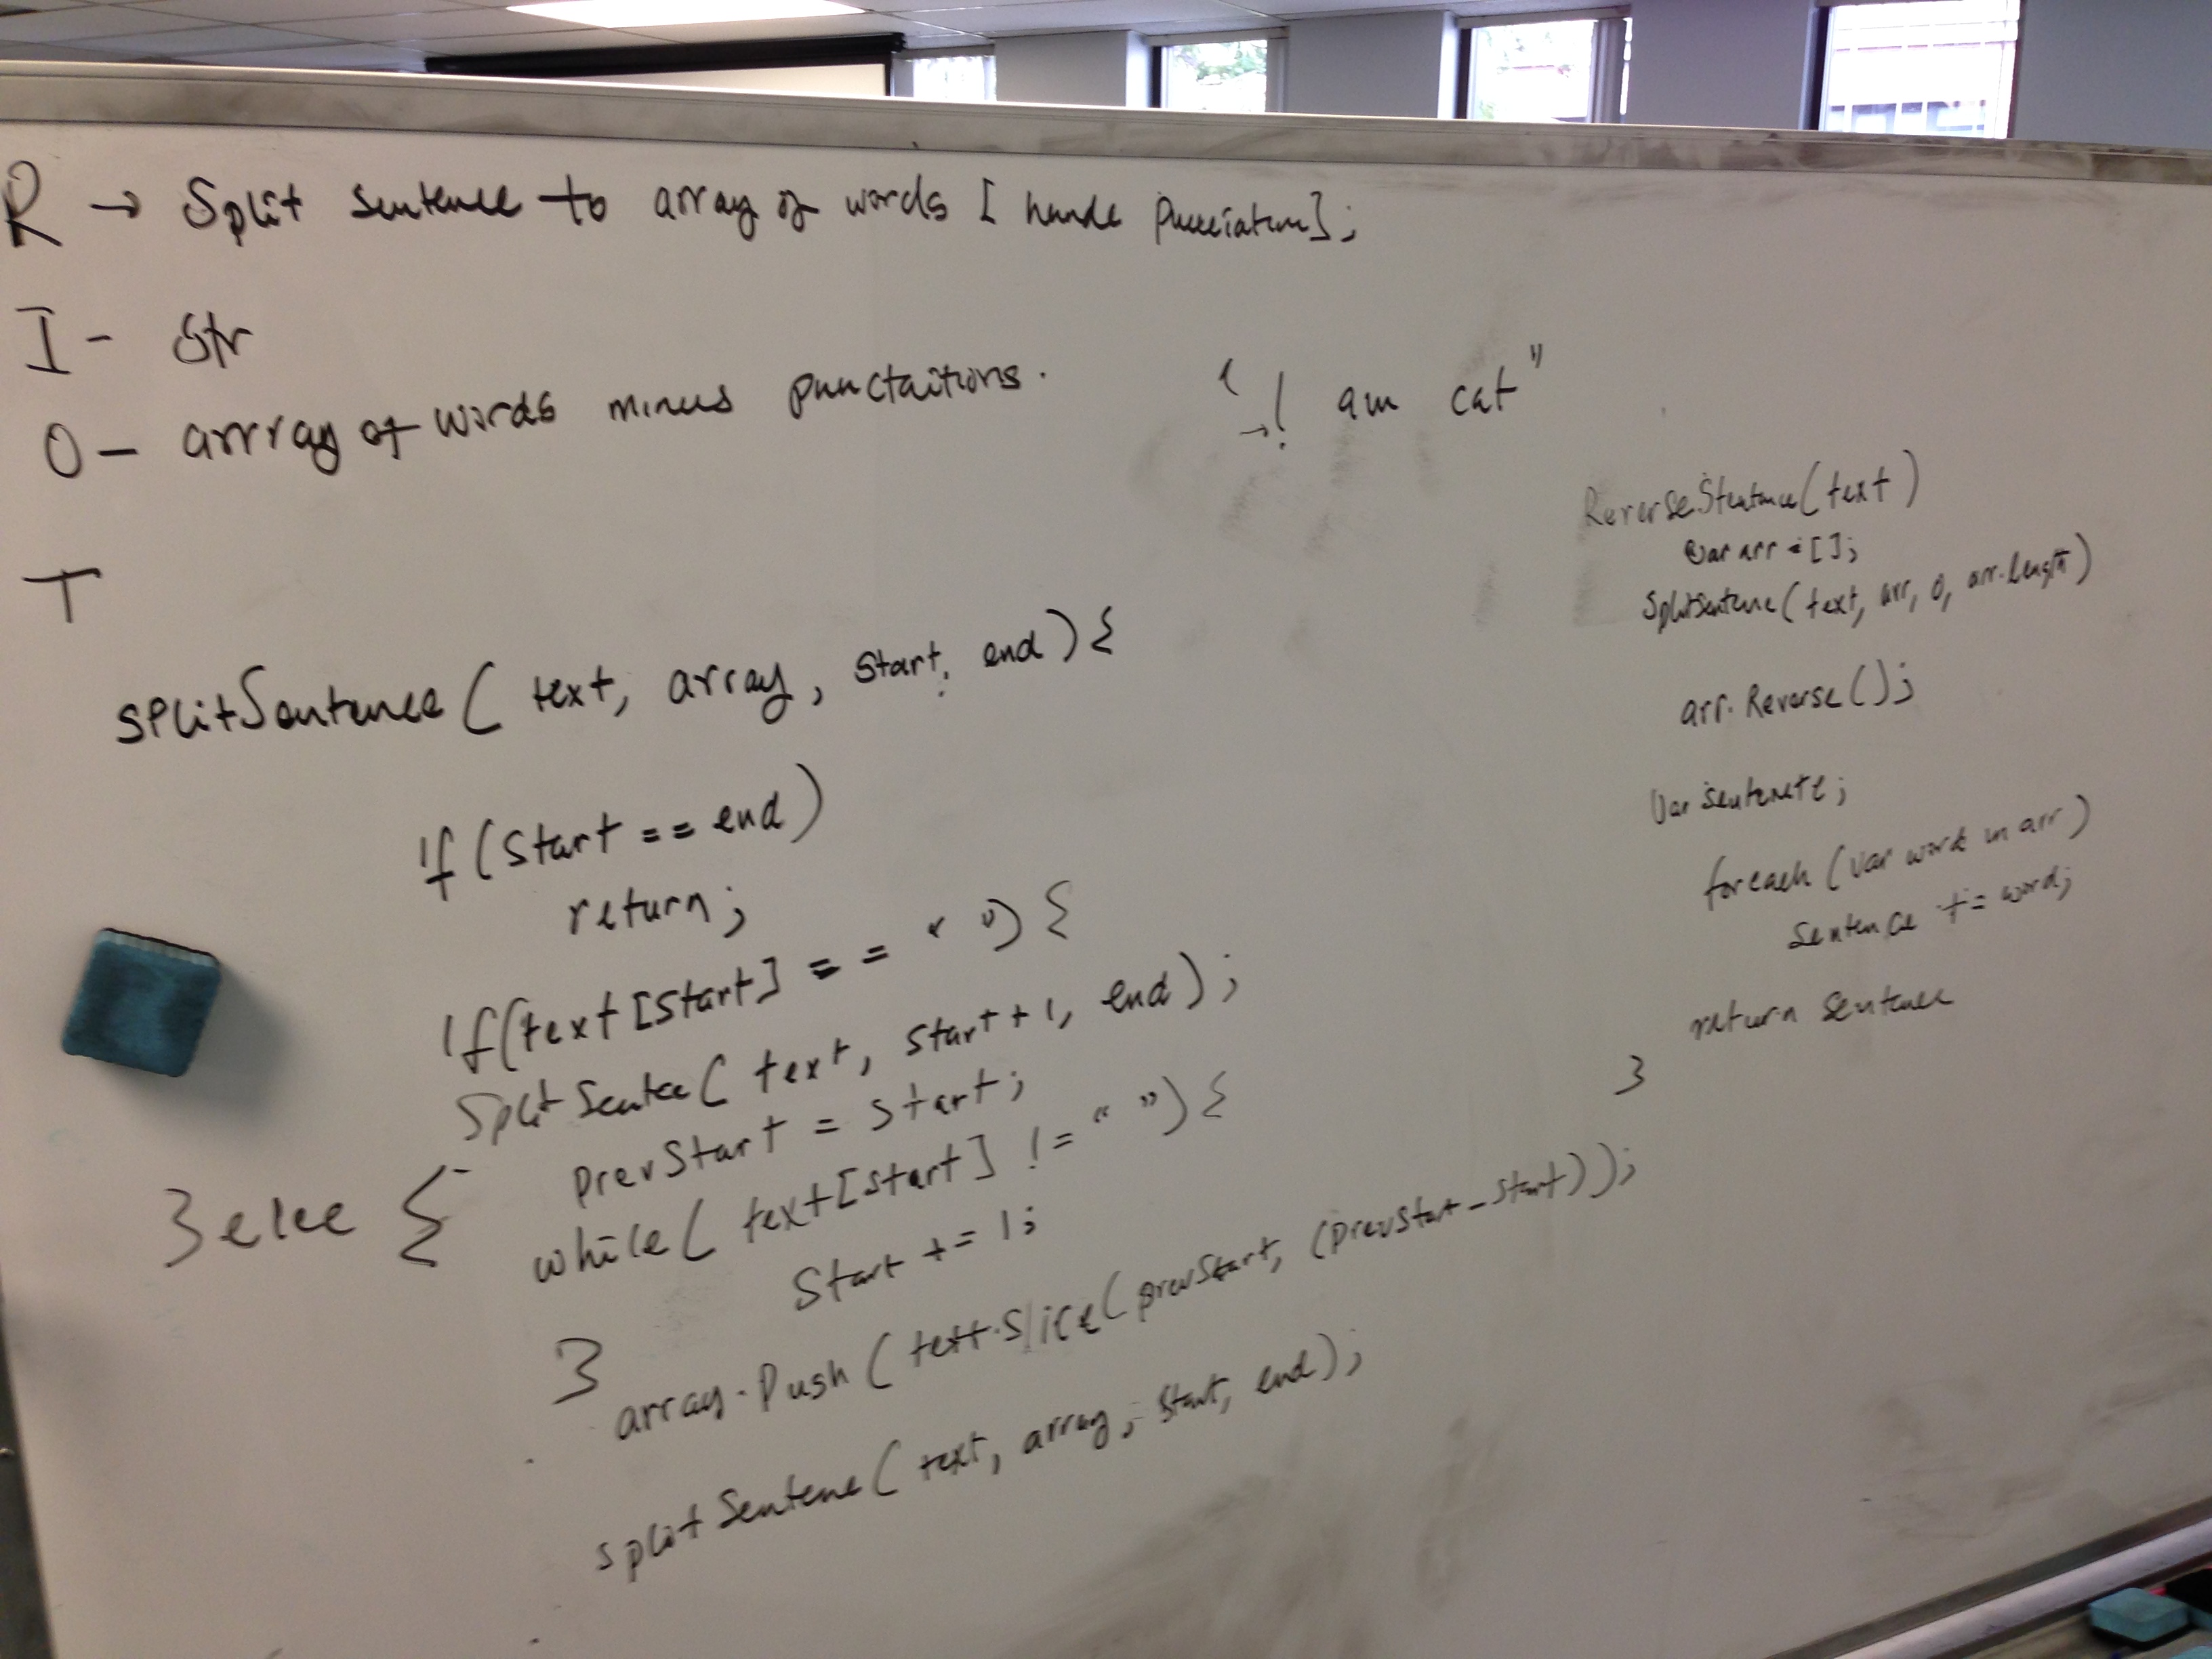 R → Split sentence to array of words [ handle punctuation];
I - Str
O - arrray of words minus punctaitions.
" I am cat"
→
T
splitSentence ( text, array, start, end) {
if (start == end)
return;
if(text [start] == " ") {
Split Sentee ( text, start+1, end);
} else {
prevStart = start;
while ( text[start] != " ") {
Start += 1;
}
array.push ( text.slice( prevStart, (prevStart - start)));
splitSentene ( text, array, start, end);
ReverseStentence(text)
var arr = [];
SplitSentene ( text, arr, 0, arr.length)
arr. Reverse();
Var sentenete;
foreach (var word in arr)
Sentence += word;
return sentence
}